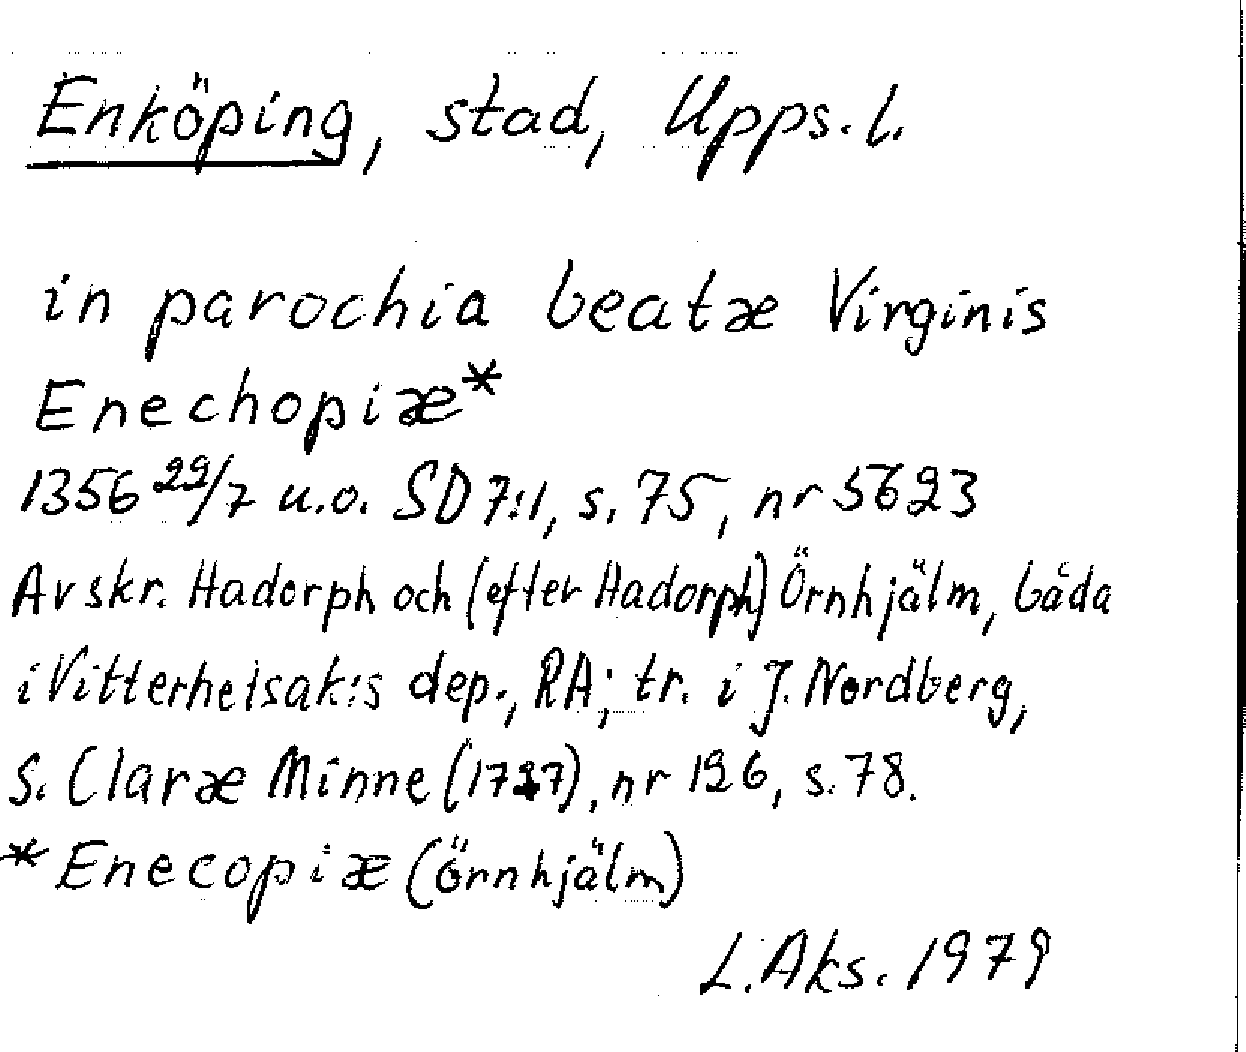 Enköping, stad, Upps. l.
in parochia beatæ Virginis
Enechopiæ*
1356 22/7 u.o. SD 7:1, s. 75, nr 5623
Avskr. Hadorph och (efter Hadorph) Örnhjälm, båda
i Vitterhetsak:s dep., RA; tr. i J. Nordberg,
S. Claræ Minne (1727), nr 126, s. 78.
* Enecopiæ (Örnhjälm)
L. Aks. 1979